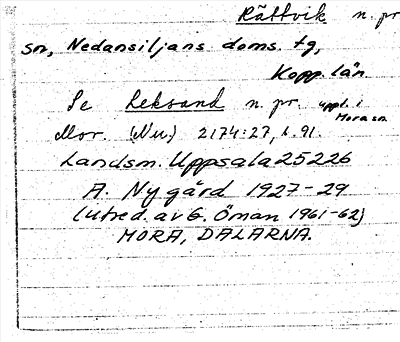 Rättvik n. pr
sn, Nedansiljans doms. tg,
Kopp. län.
Se Leksand n. pr. uppt. i
Mora sn.
Mor. (Nu.) 2174:27, s. 91.
Landsm. Uppsala 25226
A. Nygård 1927-29
(utred. av G. Öman 1961-62)
MORA, DALARNA.